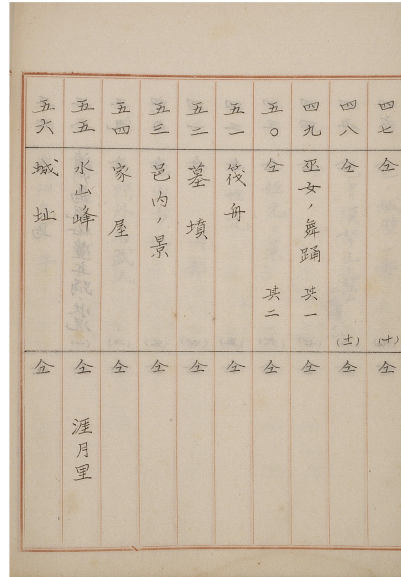 四七 仝 (十) 仝
四八 仝 (十一) 仝
四九 巫女ノ舞踊 其一 仝
五〇 仝 其二 仝
五一 筏舟 仝
五二 墓墳 仝
五三 邑内ノ景 仝
五四 家屋 仝
五五 水山峰 仝 涯月里
五六 城址 仝